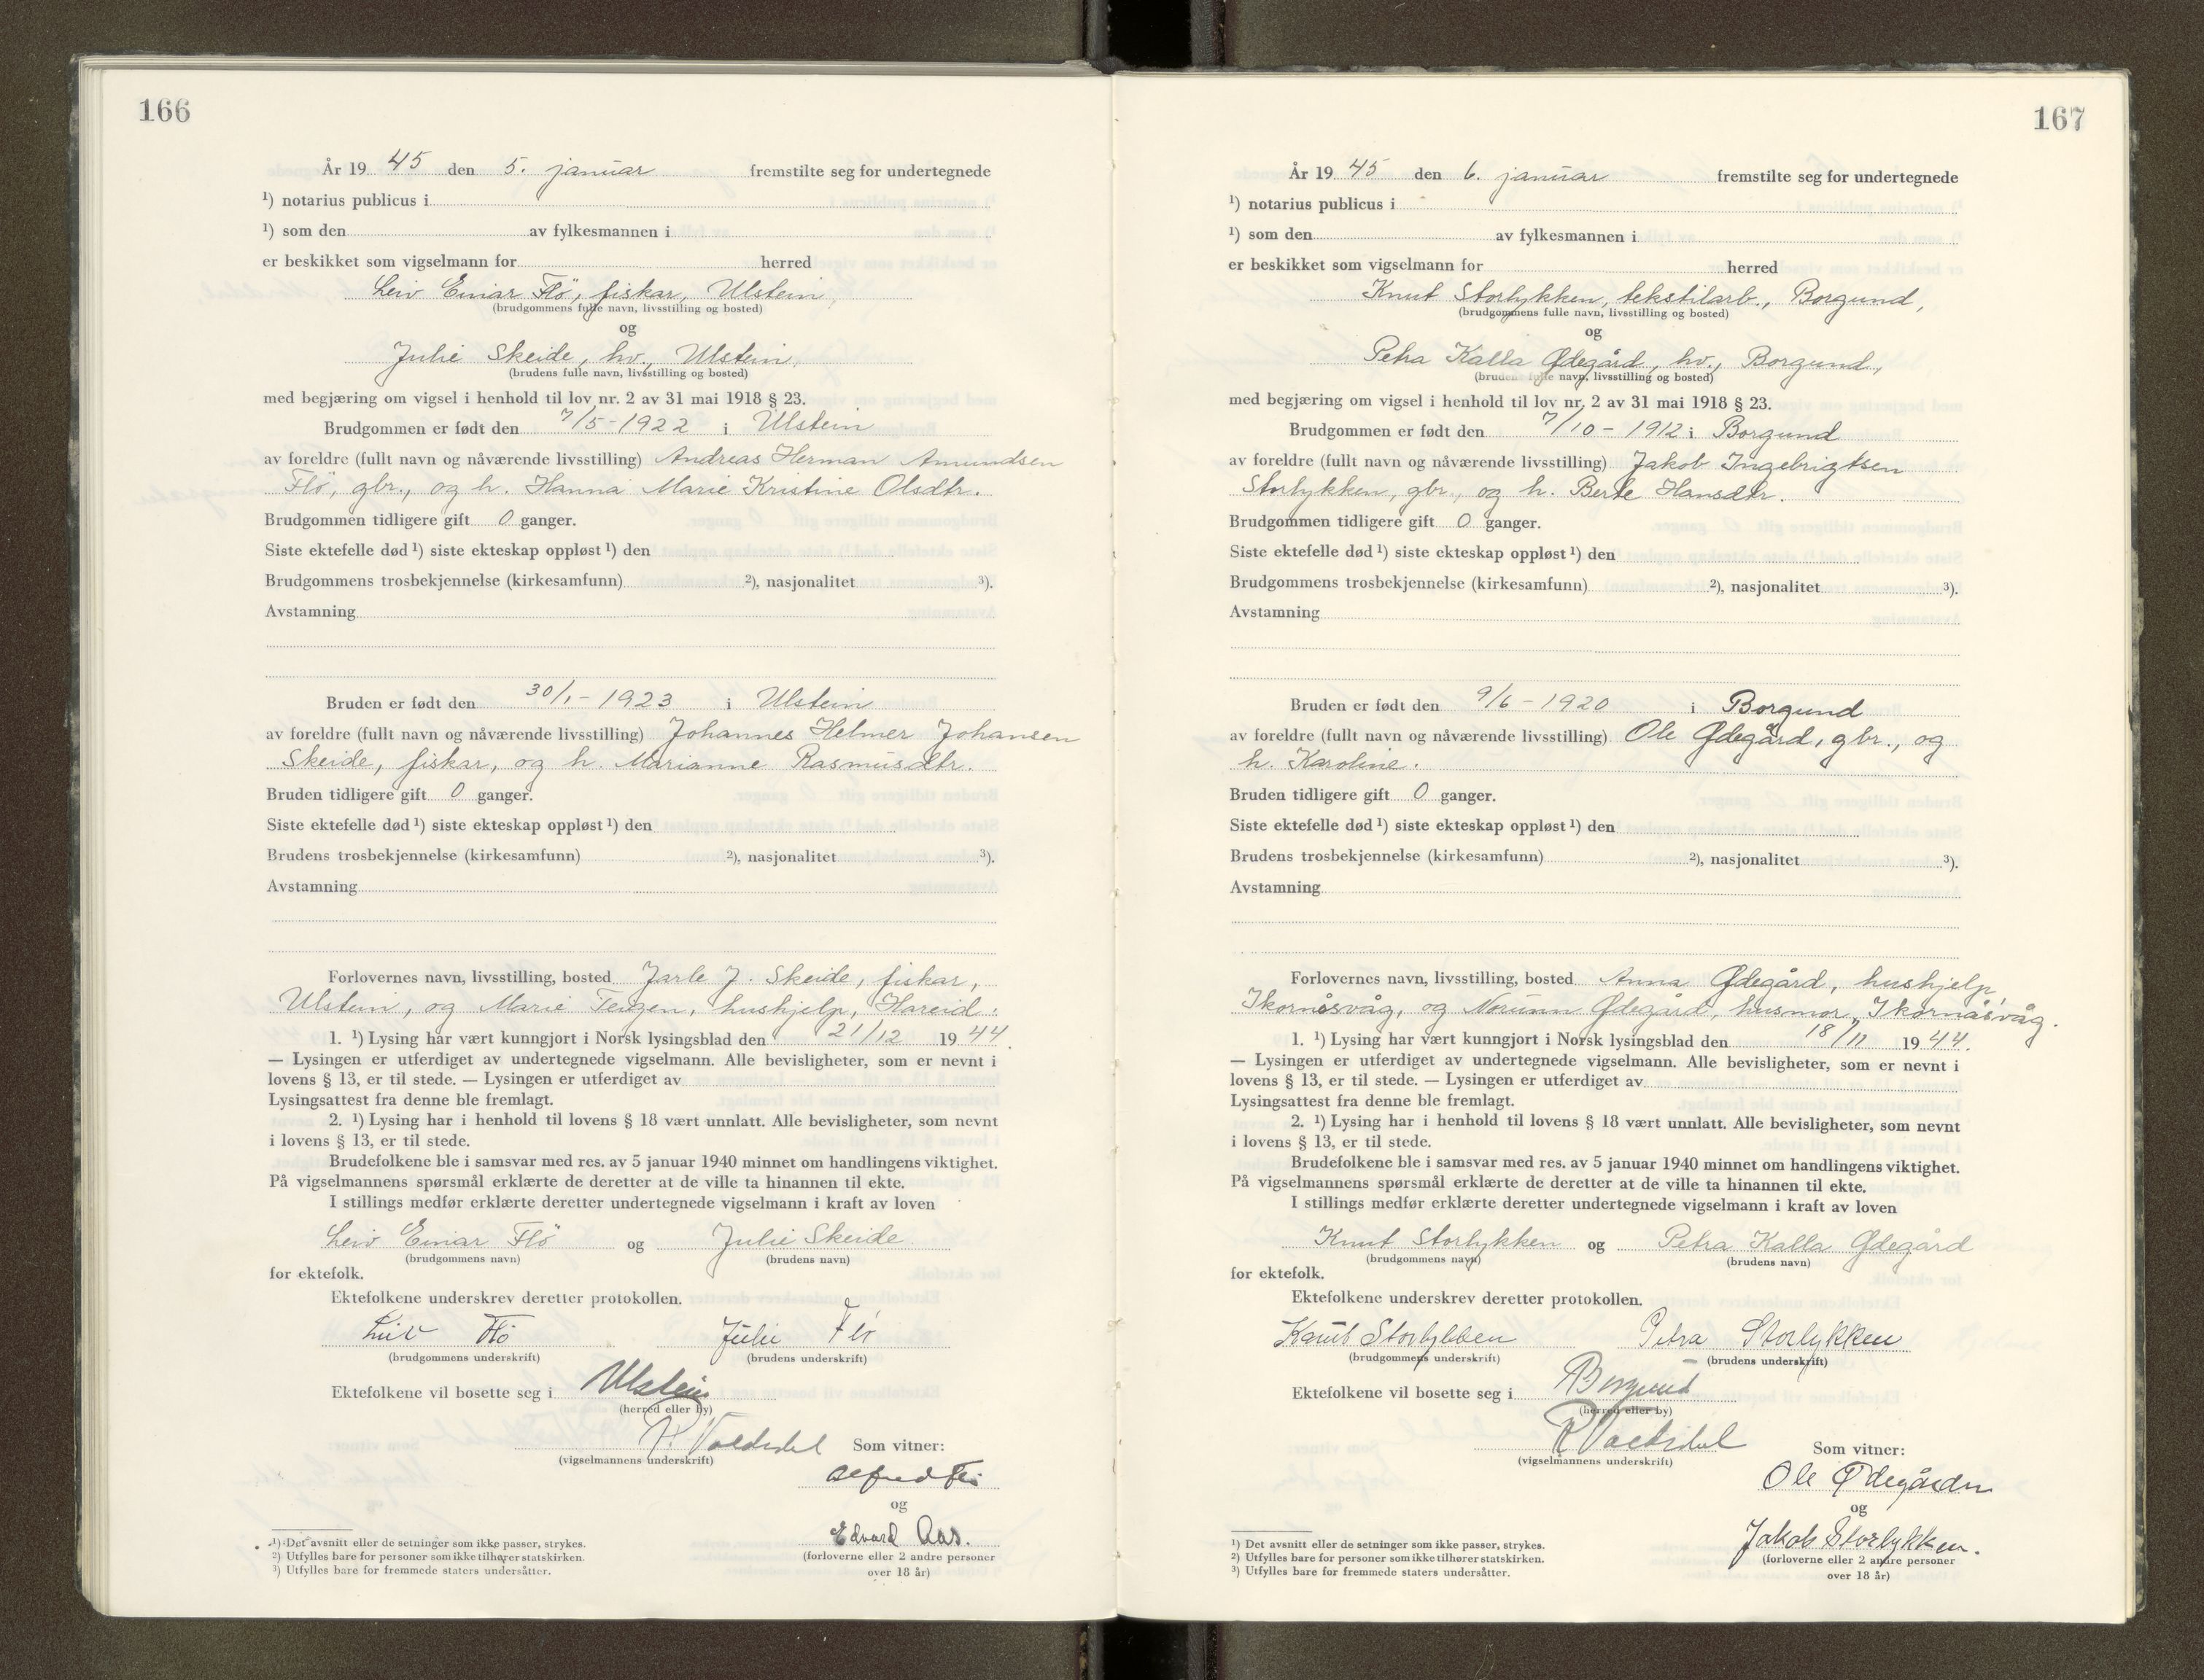 166
År 19 45 den 5. januar fremstilte seg for undertegnede
¹) notarius publicus i
¹) som den av fylkesmannen i
er beskikket som vigselmann for herred
Leiv Einar Flö, fiskar, Ulstein,
(brudgommens fulle navn, livsstilling og bosted)
og
Julie Skeide, hv., Ulstein,
(brudens fulle navn, livsstilling og bosted)
med begjæring om vigsel i henhold til lov nr. 2 av 31 mai 1918 § 23.
Brudgommen er født den 7/5-1922 i Ulstein
av foreldre (fullt navn og nåværende livsstilling) Andreas Herman Amundsen
Flö, gbr., og h. Hanna Marie Kristine Olsdtr.
Brudgommen tidligere gift 0 ganger.
Siste ektefelle død ¹) siste ekteskap oppløst ¹) den
Brudgommens trosbekjennelse (kirkesamfunn) ²), nasjonalitet ³).
Avstamning
Bruden er født den 30/1-1923 i Ulstein
av foreldre (fullt navn og nåværende livsstilling) Johannes Helmer Johansen
Skeide, fiskar, og h. Marianne Rasmusdtr.
Bruden tidligere gift 0 ganger.
Siste ektefelle død ¹) siste ekteskap oppløst ¹) den
Brudens trosbekjennelse (kirkesamfunn) ²), nasjonalitet ³).
Avstamning
Forlovernes navn, livsstilling, bosted Jarle J. Skeide, fiskar,
Ulstein, og Marie Teigen, hushjelp, Hareid.
1. ¹) Lysing har vært kunngjort i Norsk lysingsblad den 21/12 19 44.
— Lysingen er utferdiget av undertegnede vigselmann. Alle bevisligheter, som er nevnt i
lovens § 13, er til stede. — Lysingen er utferdiget av
Lysingsattest fra denne ble fremlagt.
2. ¹) Lysing har i henhold til lovens § 18 vært unnlatt. Alle bevisligheter, som nevnt
i lovens § 13, er til stede.
Brudefolkene ble i samsvar med res. av 5 januar 1940 minnet om handlingens viktighet.
På vigselmannens spørsmål erklærte de deretter at de ville ta hinannen til ekte.
I stillings medfør erklærte deretter undertegnede vigselmann i kraft av loven
Leiv Einar Flö og Julie Skeide
(brudgommens navn) (brudens navn)
for ektefolk.
Ektefolkene underskrev deretter protokollen.
Leiv Flö Julie Flö
(brudgommens underskrift) (brudens underskrift)
Ektefolkene vil bosette seg i Ulstein
(herred eller by)
Som vitner:
(vigselmannens underskrift)
Alfred Flö
og
Edvard Aas.
(forloverne eller 2 andre personer
over 18 år)
¹) Det avsnitt eller de setninger som ikke passer, strykes.
²) Utfylles bare for personer som ikke tilhører statskirken.
³) Utfylles bare for fremmede staters undersåtter.
167
År 19 45 den 6. januar fremstilte seg for undertegnede
¹) notarius publicus i
¹) som den av fylkesmannen i
er beskikket som vigselmann for herred
Knut Storlykken, tekstilarb., Borgund,
(brudgommens fulle navn, livsstilling og bosted)
og
Petra Kalla Ødegård, hv., Borgund,
(brudens fulle navn, livsstilling og bosted)
med begjæring om vigsel i henhold til lov nr. 2 av 31 mai 1918 § 23.
Brudgommen er født den 7/10 - 1912 i Borgund
av foreldre (fullt navn og nåværende livsstilling) Jakob Ingebrigtsen
Storlykken, gbr., og h. Berte Hansdtr.
Brudgommen tidligere gift 0 ganger.
Siste ektefelle død ¹) siste ekteskap oppløst ¹) den
Brudgommens trosbekjennelse (kirkesamfunn) ²), nasjonalitet ³).
Avstamning
Bruden er født den 9/6 - 1920 i Borgund
av foreldre (fullt navn og nåværende livsstilling) Ole Ødegård, gbr., og
h. Karoline.
Bruden tidligere gift 0 ganger.
Siste ektefelle død ¹) siste ekteskap oppløst ¹) den
Brudens trosbekjennelse (kirkesamfunn) ²), nasjonalitet ³).
Avstamning
Forlovernes navn, livsstilling, bosted Anna Ødegård, hushjelp,
Ikornåsvåg, og Norunn Ødegård, husmor, Ikornåsvåg.
1. ¹) Lysing har vært kunngjort i Norsk lysingsblad den 18/11 19 44.
— Lysingen er utferdiget av undertegnede vigselmann. Alle bevisligheter, som er nevnt i
lovens § 13, er til stede. — Lysingen er utferdiget av
Lysingsattest fra denne ble fremlagt.
2. ¹) Lysing har i henhold til lovens § 18 vært unnlatt. Alle bevisligheter, som nevnt
i lovens § 13, er til stede.
Brudefolkene ble i samsvar med res. av 5 januar 1940 minnet om handlingens viktighet.
På vigselmannens spørsmål erklærte de deretter at de ville ta hinannen til ekte.
I stillings medfør erklærte deretter undertegnede vigselmann i kraft av loven
Knut Storlykken og Petra Kalla Ødegård
(brudgommens navn) (brudens navn)
for ektefolk.
Ektefolkene underskrev deretter protokollen.
Knut Storlykken Petra Storlykken
(brudgommens underskrift) (brudens underskrift)
Ektefolkene vil bosette seg i Borgund
(herred eller by)
Som vitner:
(vigselmannens underskrift)
Ole Ødegården
og
Jakob Storlykken.
(forloverne eller 2 andre personer
over 18 år)
¹) Det avsnitt eller de setninger som ikke passer, strykes.
²) Utfylles bare for personer som ikke tilhører statskirken.
³) Utfylles bare for fremmede staters undersåtter.